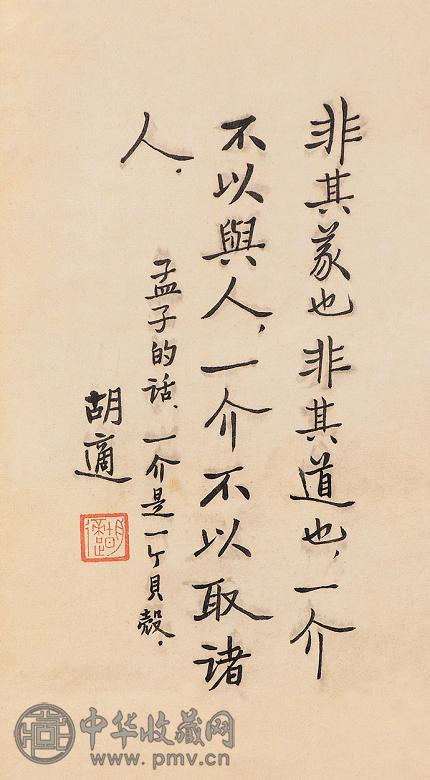 非其義也非其道也，一介
不以與人，一介不以取诸
人．
孟子的话、一介是一ケ貝殼．
胡適
中华收藏网
www.pmv.cn